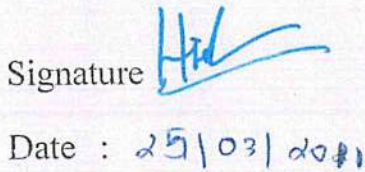 Signature
Date : 25/03/2011